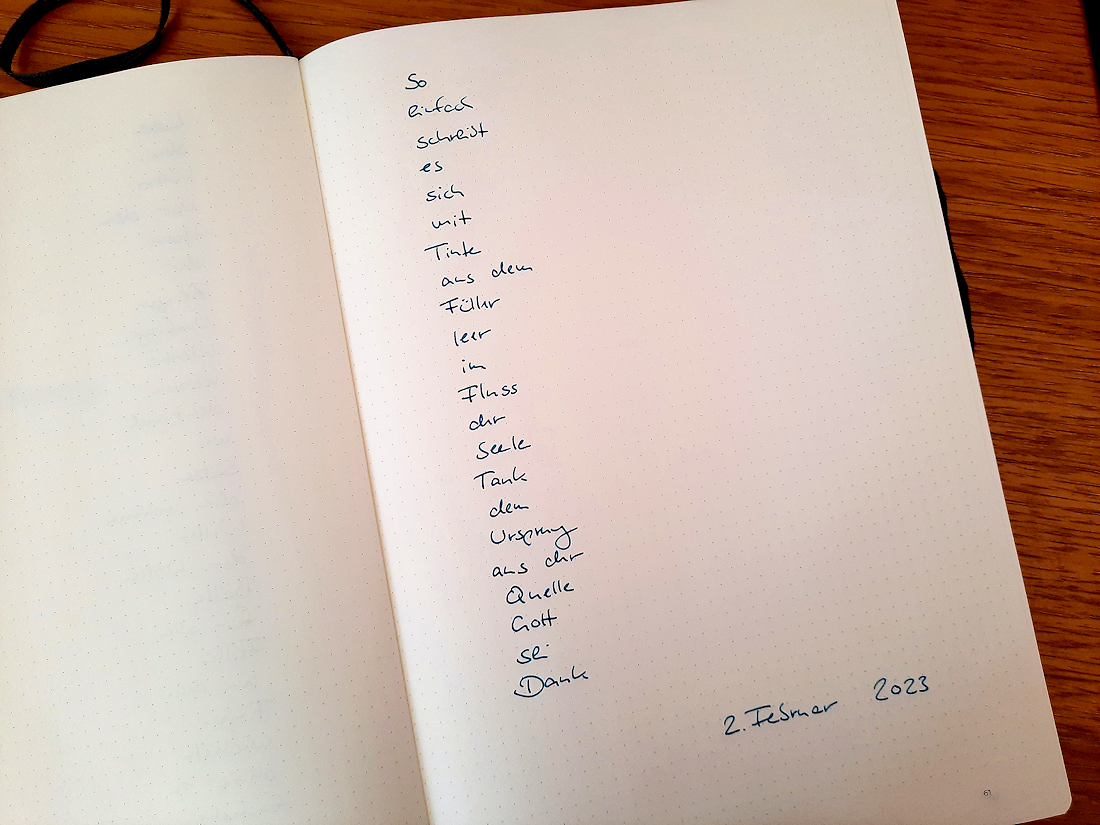 So
einfach
schreibt
es
sich
mit
Tinte
aus dem
Füller
leer
im
Fluss
der
Seele
Tank
dem
Ursprung
aus der
Quelle
Gott
sei
Dank
2. Februar 2023
61